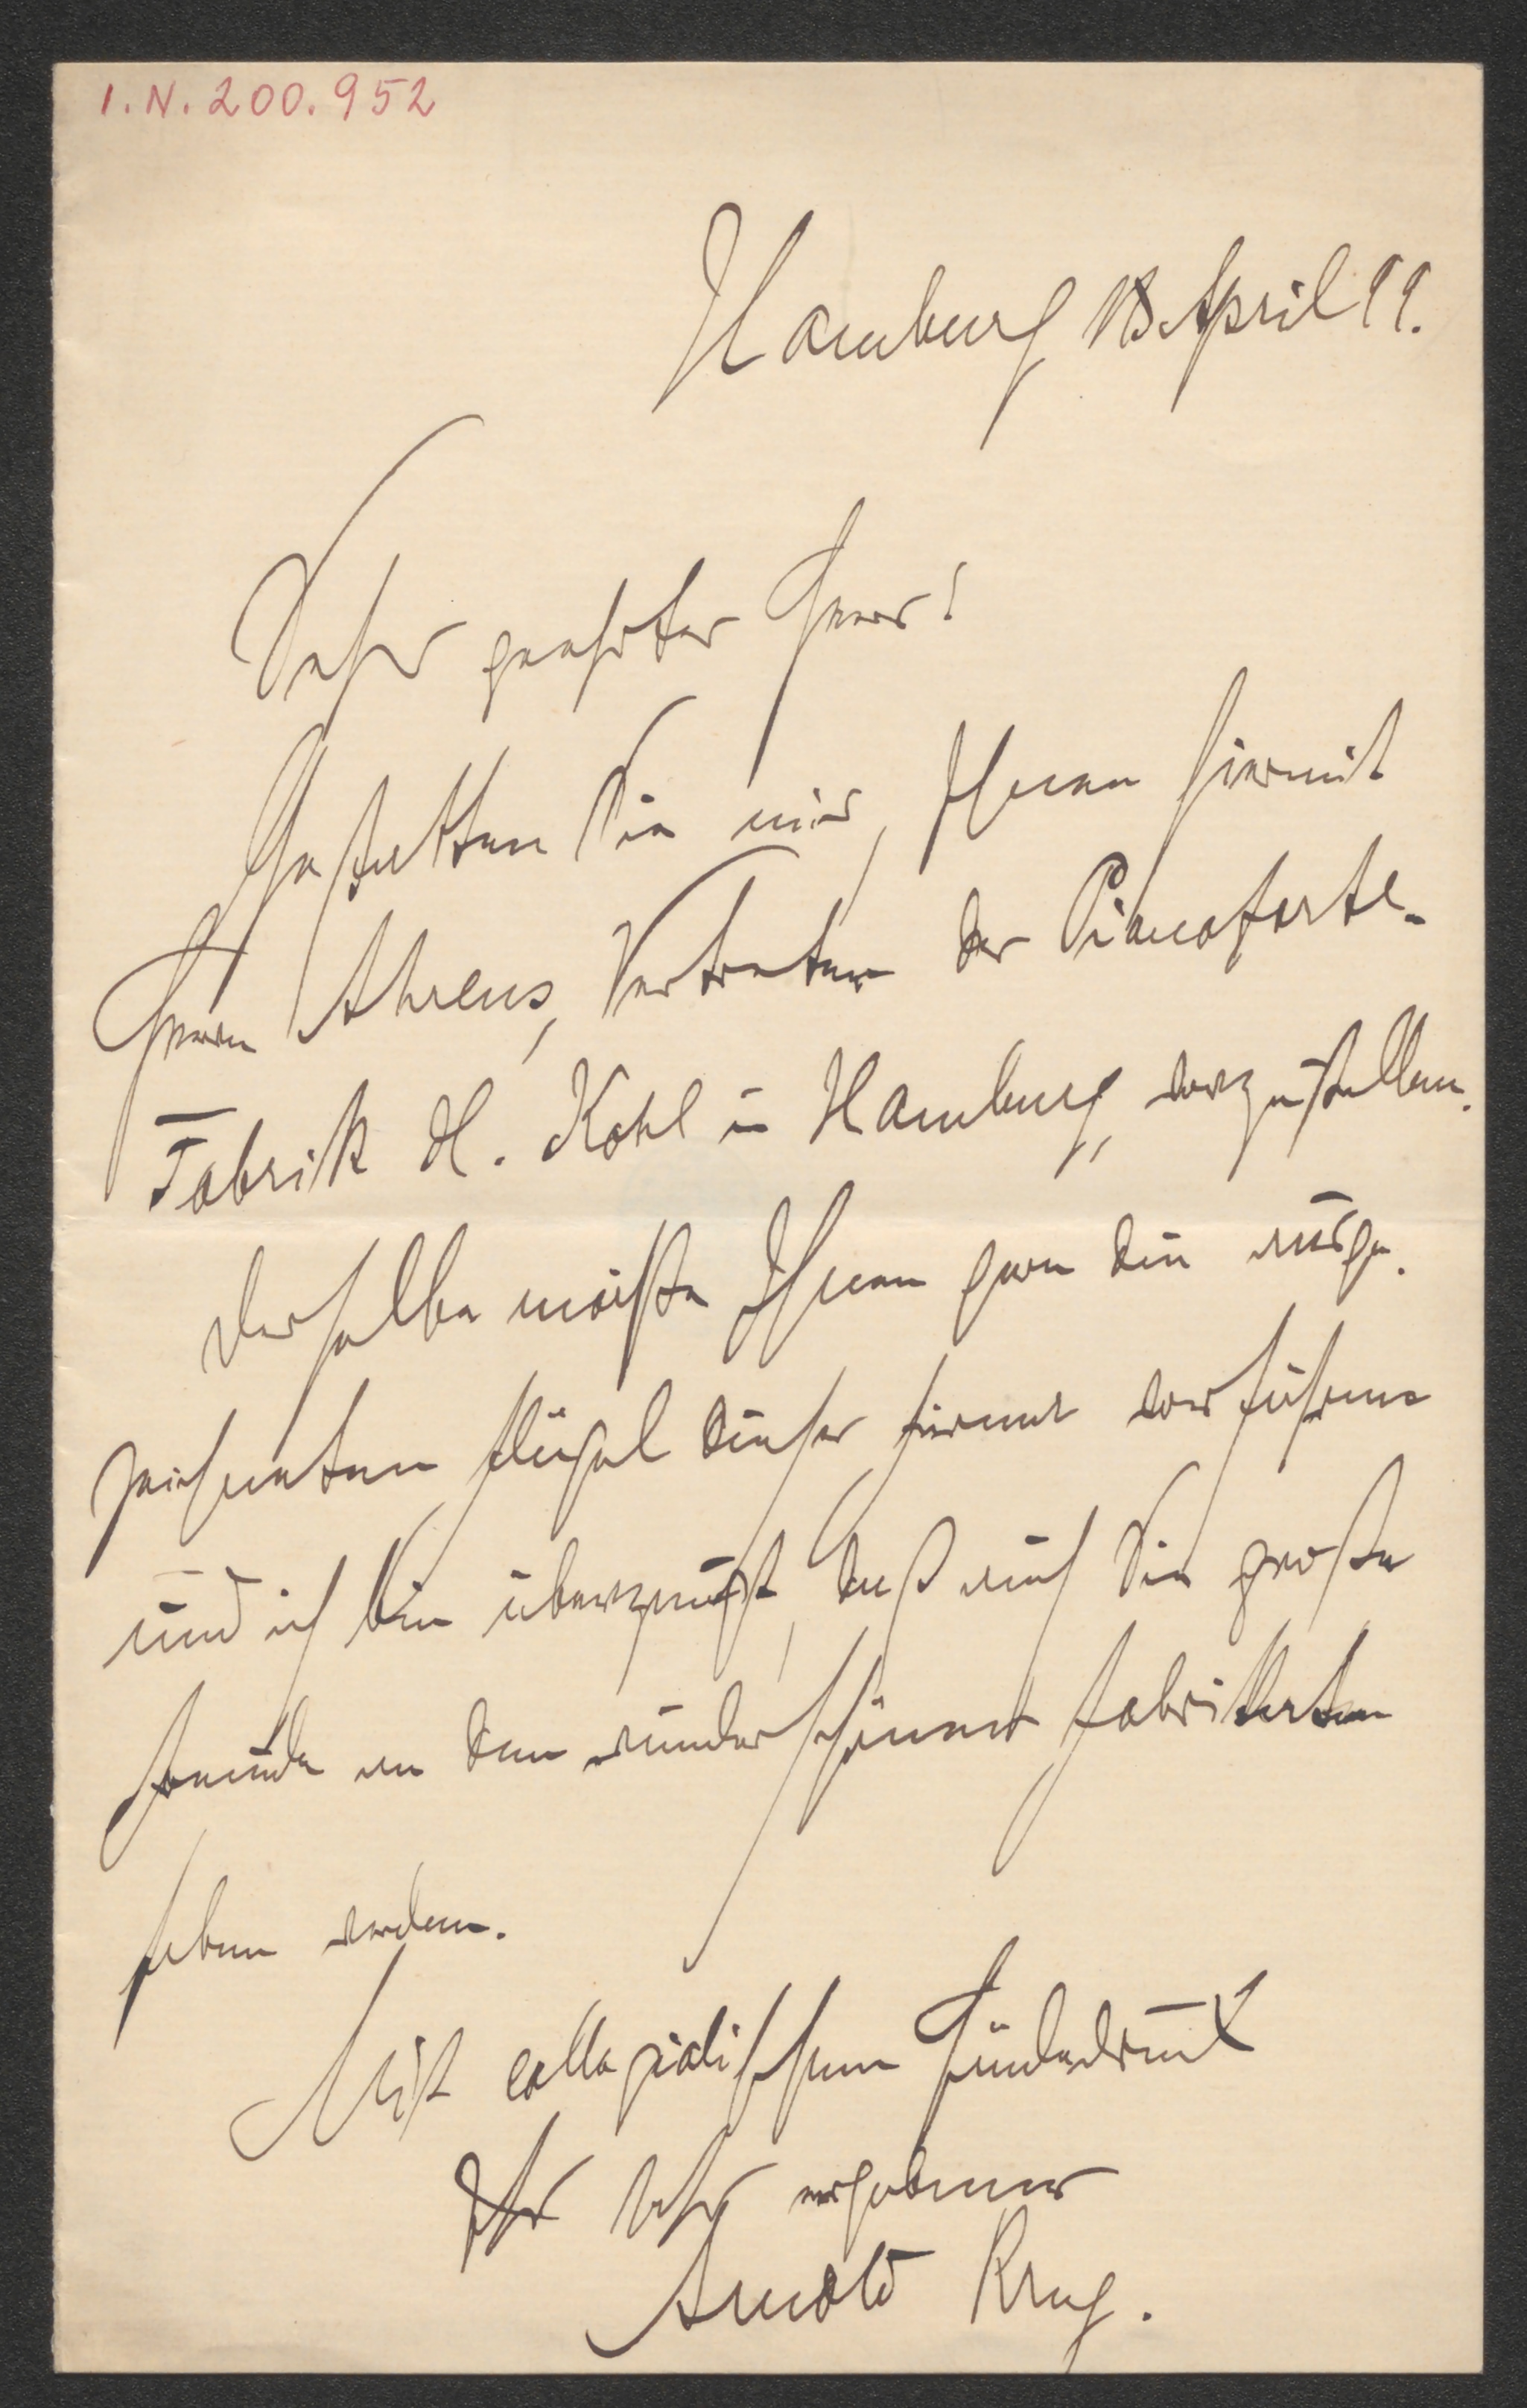 I.N.200.952
Hamburg 18 April 99.
Sehr geehrter Herr!
Gestatten Sie mir, Ihnen hiermit
Herrn Ahrens, Vertreter der Pianoforte-
Fabrik H. Kohl in Hamburg, vorzustellen.
Derselbe möchte Ihnen gern die ausge-
zeichneten Flügel dieser Firma vorführen
und ich bin überzeugt, daß auch Sie große
Freude an den wunderschönen Fabrikaten
haben werden.
Mit collegialischem Händedruck
Ihr sehr ergebener
Arnold Krug.